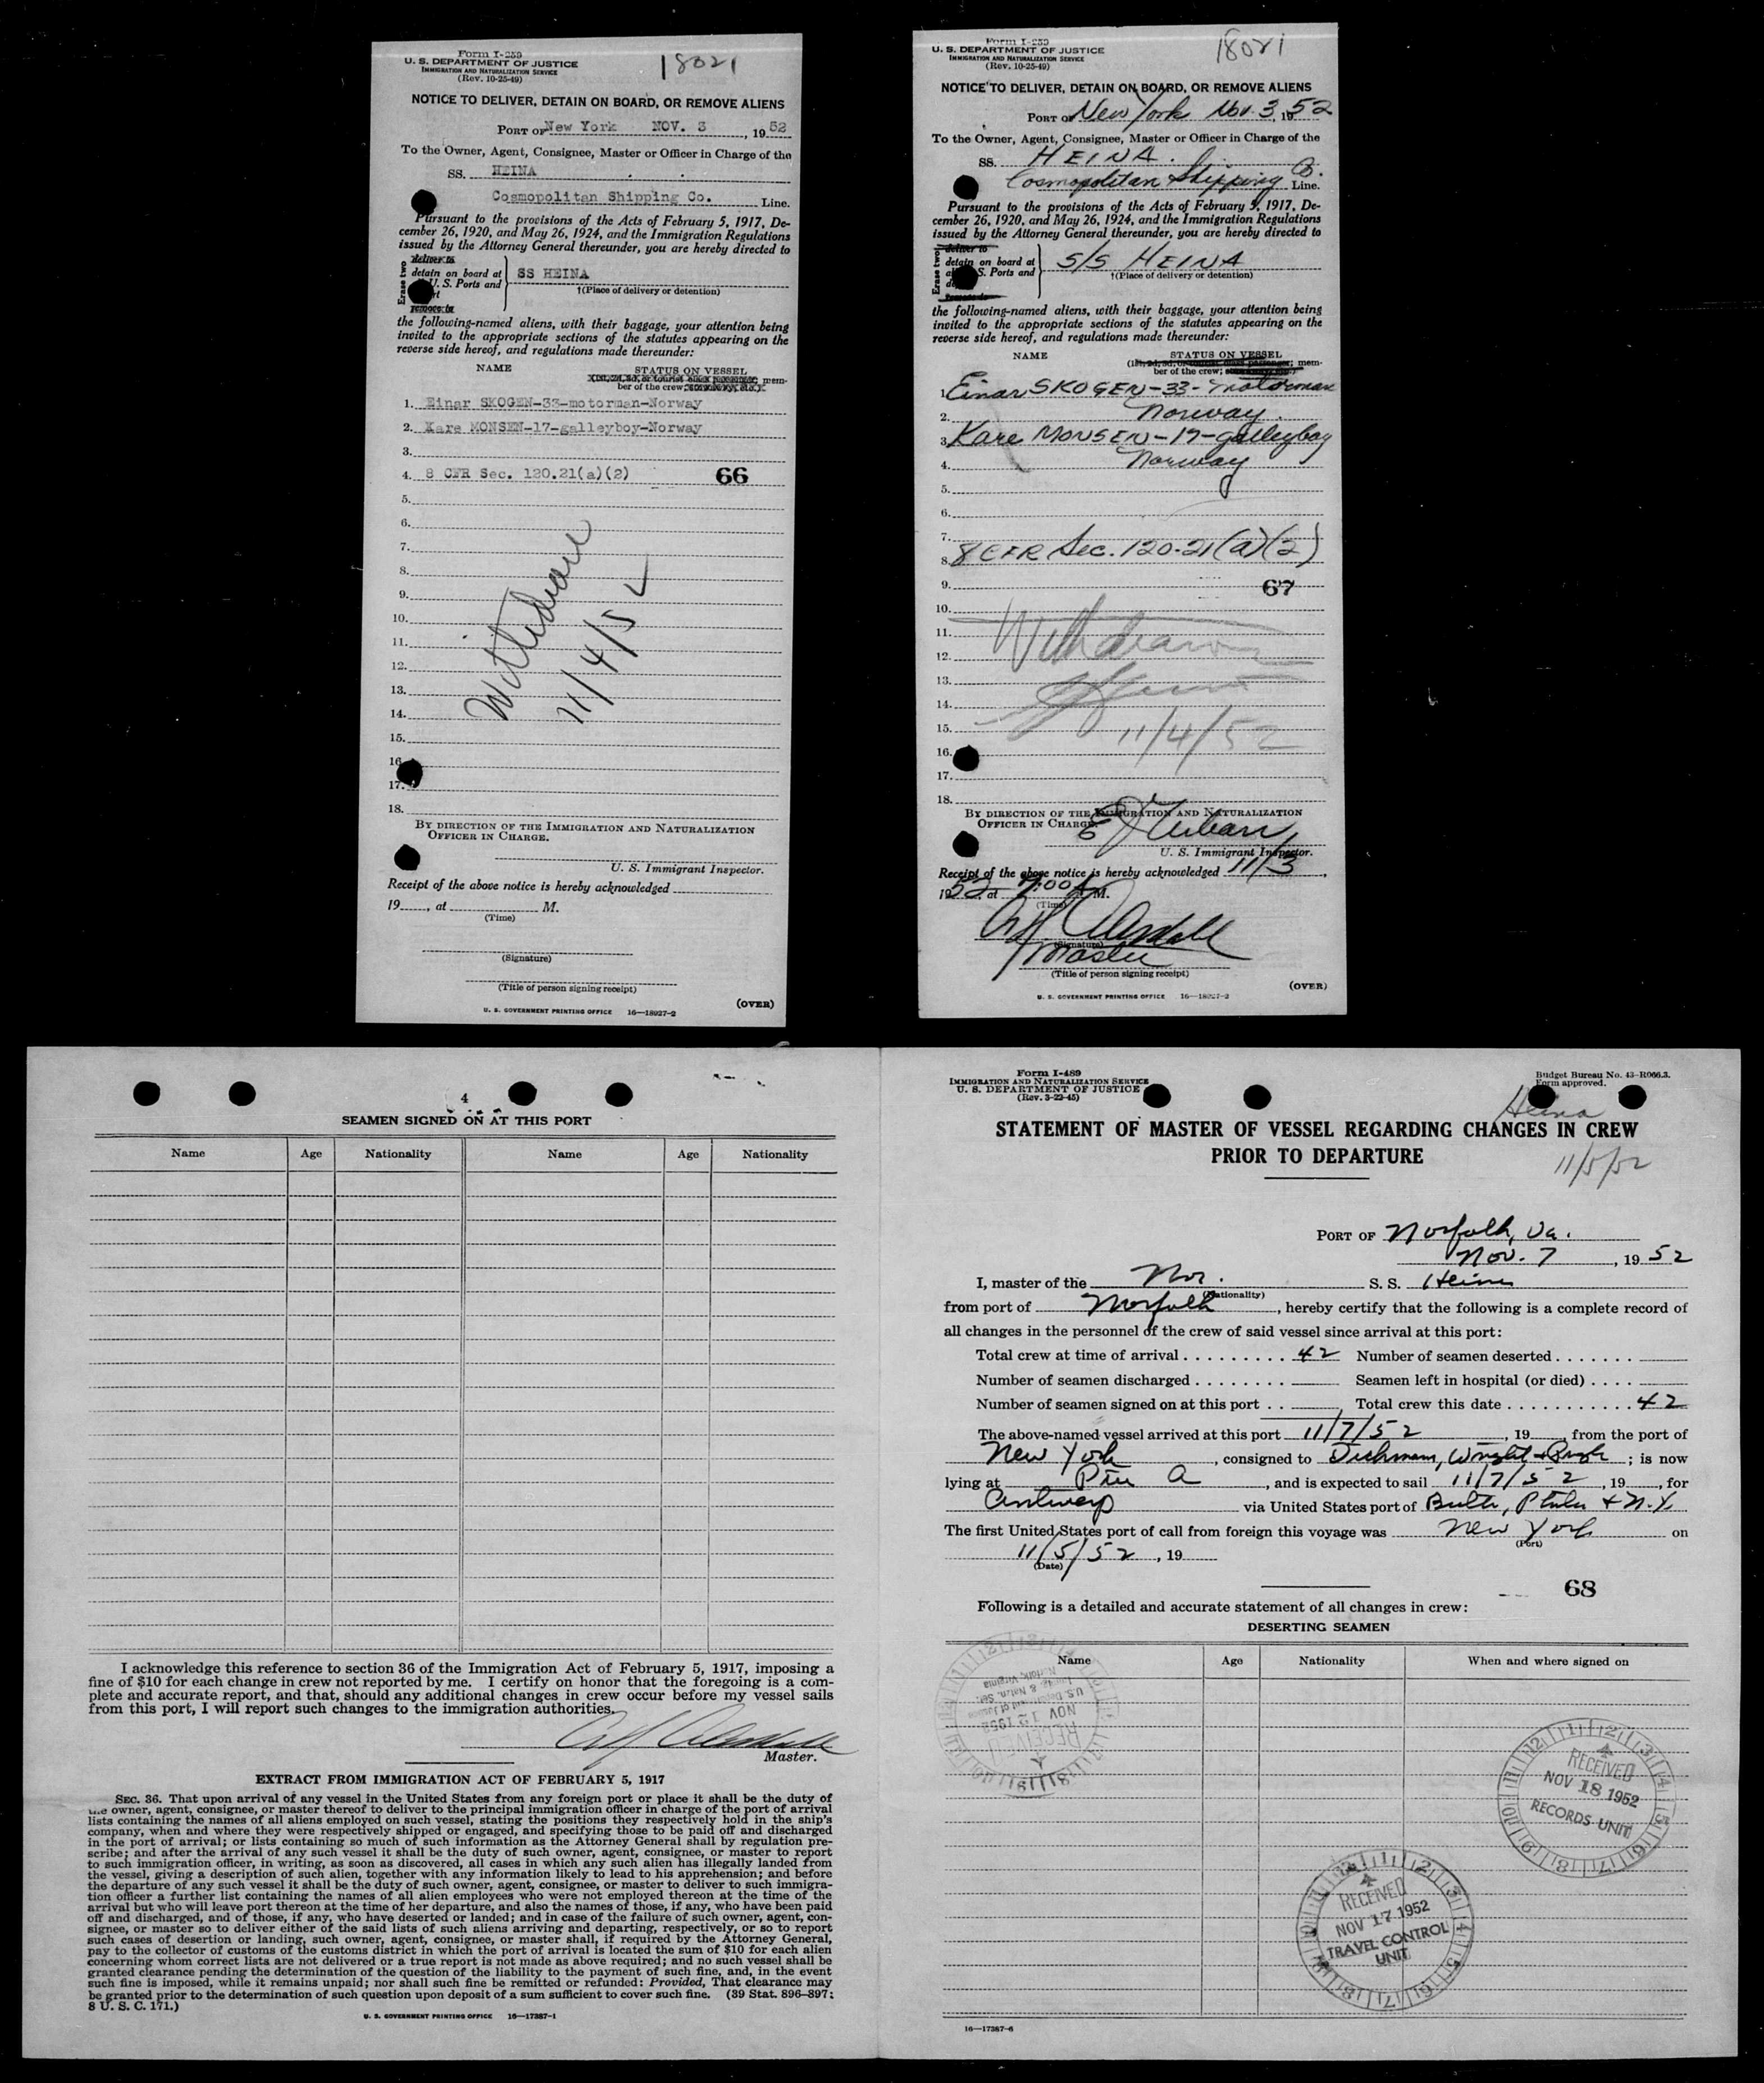 Form I-259
U. S. DEPARTMENT OF JUSTICE
IMMIGRATION AND NATURALIZATION SERVICE
(Rev. 10-25-49)
18021
NOTICE TO DELIVER, DETAIN ON BOARD, OR REMOVE ALIENS
PORT OF New York NOV. 3, 1952
To the Owner, Agent, Consignee, Master or Officer in Charge of the
SS. HEINA
Cosmopolitan Shipping Co. Line.
Pursuant to the provisions of the Acts of February 5, 1917, De-
cember 26, 1920, and May 26, 1924, and the Immigration Regulations
issued by the Attorney General thereunder, you are hereby directed to
Erase two
deliver to
detain on board at
U. S. Ports and
remove to
SS HEINA
†(Place of delivery or detention)
the following-named aliens, with their baggage, your attention being
invited to the appropriate sections of the statutes appearing on the
reverse side hereof, and regulations made thereunder:
NAME STATUS ON VESSEL
mem-
ber of the crew;
1. Einar SKOGEN-33-motorman-Norway
2. Kare MONSEN-17-galleyboy-Norway
3.
4. 8 CFR Sec. 120.21(a)(2) 66
5.
6.
7.
8.
9.
10.
11.
12.
13.
14.
15.
16.
17.
18.
Withdrawn
11/4/5
BY DIRECTION OF THE IMMIGRATION AND NATURALIZATION
OFFICER IN CHARGE.
U. S. Immigrant Inspector.
Receipt of the above notice is hereby acknowledged
19, at M.
(Time)
(Signature)
(Title of person signing receipt)
(OVER)
U. S. GOVERNMENT PRINTING OFFICE 16—18027-2
Form I-259
U. S. DEPARTMENT OF JUSTICE
IMMIGRATION AND NATURALIZATION SERVICE
(Rev. 10-25-49)
18021
NOTICE TO DELIVER, DETAIN ON BOARD, OR REMOVE ALIENS
PORT OF New York Nov. 3, 1952
To the Owner, Agent, Consignee, Master or Officer in Charge of the
SS. HEINA.
Cosmopolitan Shipping Co. Line.
Pursuant to the provisions of the Acts of February 5, 1917, De-
cember 26, 1920, and May 26, 1924, and the Immigration Regulations
issued by the Attorney General thereunder, you are hereby directed to
Erase two
deliver to
detain on board at
S. Ports and
remove to
S/S HEINA
†(Place of delivery or detention)
the following-named aliens, with their baggage, your attention being
invited to the appropriate sections of the statutes appearing on the
reverse side hereof, and regulations made thereunder:
NAME STATUS ON VESSEL
mem-
ber of the crew;
1. Einar SKOGEN-33-motorman
2. Norway.
3. Kare MONSEN-17-galleyboy
4. Norway
5.
6.
7.
8. 8 CFR Sec. 120.21(a)(2)
9. 67
10.
11. Withdrawn
12.
13.
14.
15. 11/4/52
16.
17.
18.
BY DIRECTION OF THE IMMIGRATION AND NATURALIZATION
OFFICER IN CHARGE.
U. S. Immigrant Inspector.
Receipt of the above notice is hereby acknowledged 11/3,
1952, at 7:00 A M.
(Time)
(Signature)
Master
(Title of person signing receipt)
(OVER)
U. S. GOVERNMENT PRINTING OFFICE 16—18027-2
4
SEAMEN SIGNED ON AT THIS PORT
Name Age Nationality Name Age Nationality
I acknowledge this reference to section 36 of the Immigration Act of February 5, 1917, imposing a
fine of $10 for each change in crew not reported by me. I certify on honor that the foregoing is a com-
plete and accurate report, and that, should any additional changes in crew occur before my vessel sails
from this port, I will report such changes to the immigration authorities.
Master.
EXTRACT FROM IMMIGRATION ACT OF FEBRUARY 5, 1917
SEC. 36. That upon arrival of any vessel in the United States from any foreign port or place it shall be the duty of
the owner, agent, consignee, or master thereof to deliver to the principal immigration officer in charge of the port of arrival
lists containing the names of all aliens employed on such vessel, stating the positions they respectively hold in the ship's
company, when and where they were respectively shipped or engaged, and specifying those to be paid off and discharged
in the port of arrival; or lists containing so much of such information as the Attorney General shall by regulation pre-
scribe; and after the arrival of any such vessel it shall be the duty of such owner, agent, consignee, or master to report
to such immigration officer, in writing, as soon as discovered, all cases in which any such alien has illegally landed from
the vessel, giving a description of such alien, together with any information likely to lead to his apprehension; and before
the departure of any such vessel it shall be the duty of such owner, agent, consignee, or master to deliver to such immigra-
tion officer a further list containing the names of all alien employees who were not employed thereon at the time of the
arrival but who will leave port thereon at the time of her departure, and also the names of those, if any, who have been paid
off and discharged, and of those, if any, who have deserted or landed; and in case of the failure of such owner, agent, con-
signee, or master so to deliver either of the said lists of such aliens arriving and departing, respectively, or so to report
such cases of desertion or landing, such owner, agent, consignee, or master shall, if required by the Attorney General,
pay to the collector of customs of the customs district in which the port of arrival is located the sum of $10 for each alien
concerning whom correct lists are not delivered or a true report is not made as above required; and no such vessel shall be
granted clearance pending the determination of the question of the liability to the payment of such fine, and, in the event
such fine is imposed, while it remains unpaid; nor shall such fine be remitted or refunded: Provided, That clearance may
be granted prior to the determination of such question upon deposit of a sum sufficient to cover such fine. (39 Stat. 896-897;
8 U. S. C. 171.)
U. S. GOVERNMENT PRINTING OFFICE 16—17387-1
Form I-489
IMMIGRATION AND NATURALIZATION SERVICE
U. S. DEPARTMENT OF JUSTICE
(Rev. 3-22-45)
Budget Bureau No. 43-R066.3.
Form approved.
Heina
STATEMENT OF MASTER OF VESSEL REGARDING CHANGES IN CREW
PRIOR TO DEPARTURE
11/5/52
PORT OF Norfolk, Va.
Nov. 7, 1952
I, master of the Nor. S. S. Heina
(Nationality)
from port of Norfolk, hereby certify that the following is a complete record of
all changes in the personnel of the crew of said vessel since arrival at this port:
Total crew at time of arrival 42 Number of seamen deserted
Number of seamen discharged Seamen left in hospital (or died)
Number of seamen signed on at this port Total crew this date 42
The above-named vessel arrived at this port 11/7/52, 19, from the port of
New York, consigned to Wright &; is now
lying at Pier A, and is expected to sail 11/7/52, 19, for
Antwerp via United States port of Balto, Phila + N.Y.
The first United States port of call from foreign this voyage was New York on
(Port)
11/5/52, 19
(Date)
68
Following is a detailed and accurate statement of all changes in crew:
DESERTING SEAMEN
Name Age Nationality When and where signed on
RECEIVED
NOV 12 1952
U.S. Department of Justice
Immig. & Natzn. Ser.
Norfolk, Virginia
RECEIVED
NOV 18 1952
RECORDS UNIT
RECEIVED
NOV 17 1952
TRAVEL CONTROL
UNIT
16—17387-6